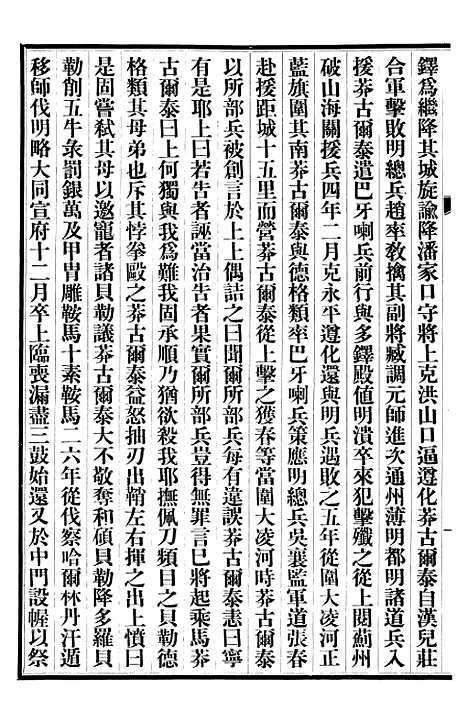 鐸爲繼降其城旋諭降潘家口守將上克洪山口逼遵化莽古爾泰自漢兒莊
合軍擊敗明總兵趙率敎擒其副將臧調元師進次通州薄明都明諸道兵入
援莽古爾泰遣巴牙喇兵前行與多鐸殿値明潰卒來犯擊殲之從上閱薊州
破山海關援兵四年二月克永平遵化還與明兵遇敗之五年從圍大凌河正
藍旗圍其南莽古爾泰與德格類率巴牙喇兵策應明總兵吳襄監軍道張春
赴援距城十五里而營莽古爾泰從上擊之獲春等當圍大凌河時莽古爾泰
以所部兵被創言於上上偶詰之曰聞爾所部兵每有違誤莽古爾泰恚曰寧
有是耶上曰若告者誣當治告者果實爾所部兵豈得無罪言已將起乘馬莽
古爾泰曰上何獨與我爲難我固承順乃猶欲殺我耶撫佩刀頻目之貝勒德
格類其母弟也斥其悖拳毆之莽古爾泰益怒抽刃出鞘左右揮之出上憤曰
是固嘗弒其母以邀寵者諸貝勒議莽古爾泰大不敬奪和碩貝勒降多羅貝
勒削五牛彔罰銀萬及甲冑雕鞍馬十素鞍馬二六年從伐察哈爾林丹汗遁
移師伐明略大同宣府十二月卒上臨喪漏盡三鼓始還又於中門設幄以祭